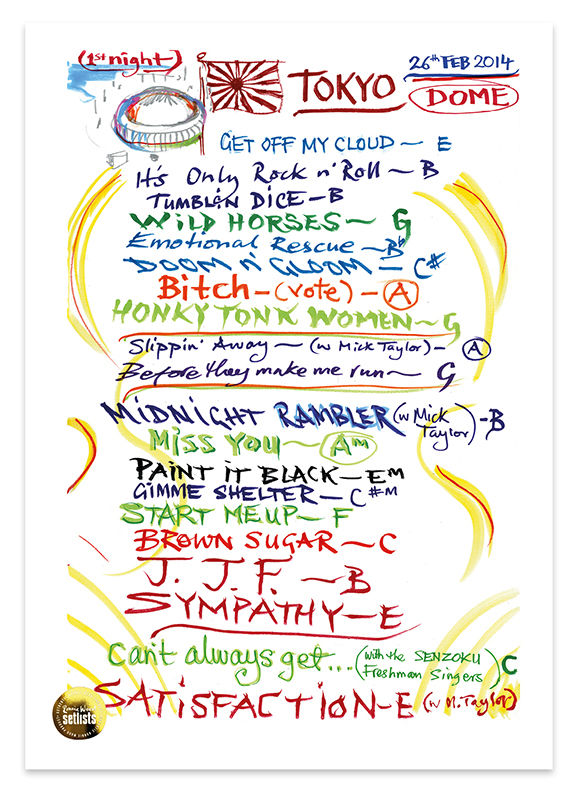 (1st night)
TOKYO
26th FEB 2014
DOME
GET OFF MY CLOUD ~ E
It's Only Rock n' Roll ~ B
TUMBLIN DICE - B
WILD HORSES ~ G
Emotional Rescue ~ Bb
DOOM n' GLOOM - C#
Bitch - (vote) - A
HONKY TONK WOMEN ~ G
'Slippin' Away ~ (w Mick Taylor) - A
Before they make me run ~ G
MIDNIGHT RAMBLER (w Mick Taylor) - B
MISS YOU ~ Am
PAINT IT BLACK - Em
GIMME SHELTER - C#m
START ME UP - F
BROWN SUGAR ~ C
J. J. F. ~ B
SYMPATHY - E
Can't always get... (with the SENZOKU Freshman Singers) C
SATISFACTION - E (w M. Taylor)
Ronnie Wood
setlists